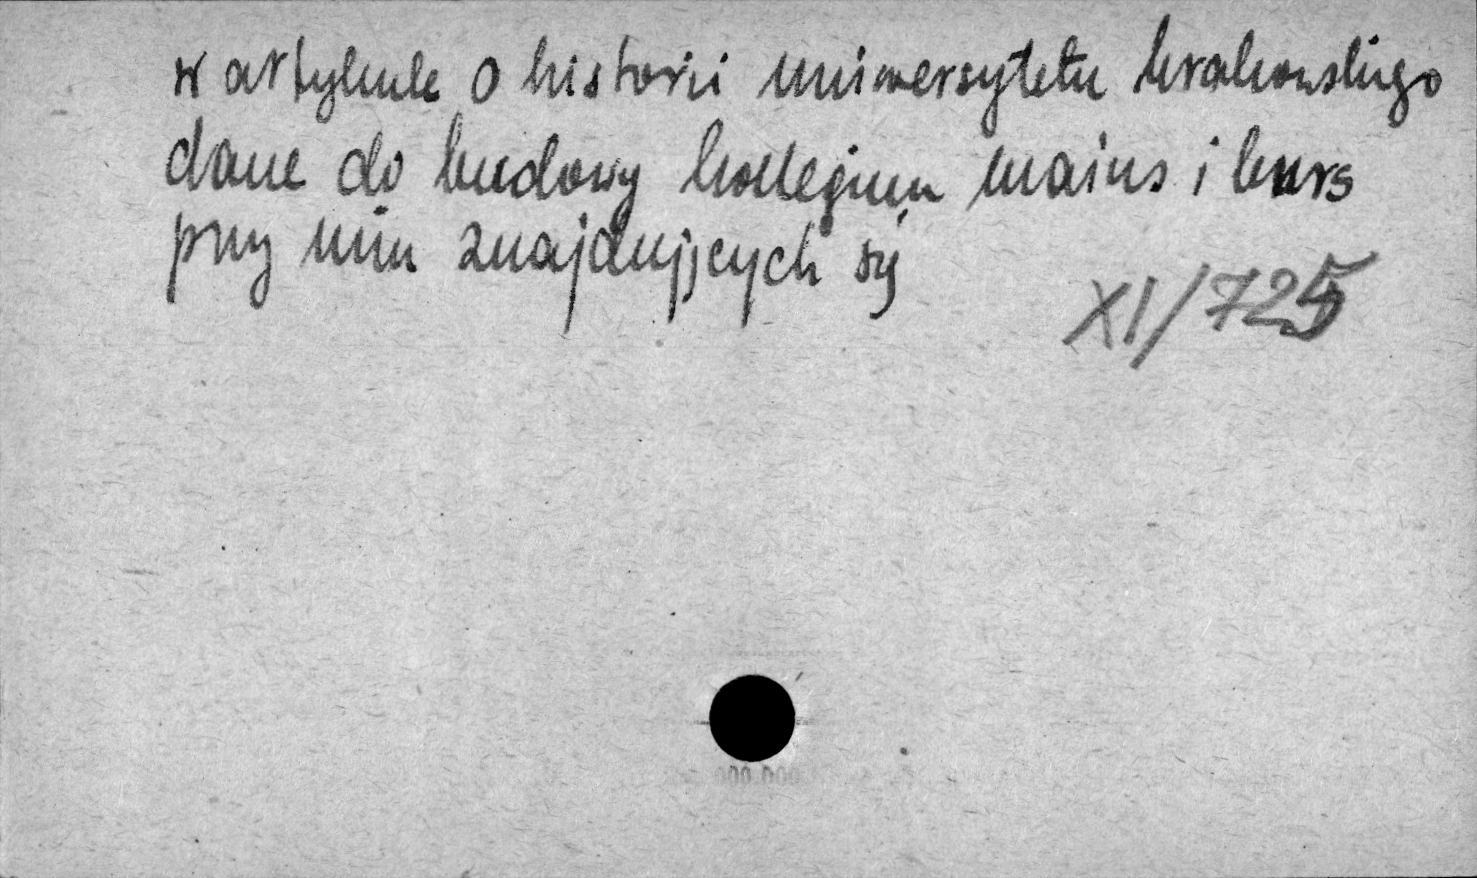 w artykule o historii uniwersytetu krakowskiego
dane do budowy kollegium maius i burs
przy nim znajdujących się
XI/725
000.000